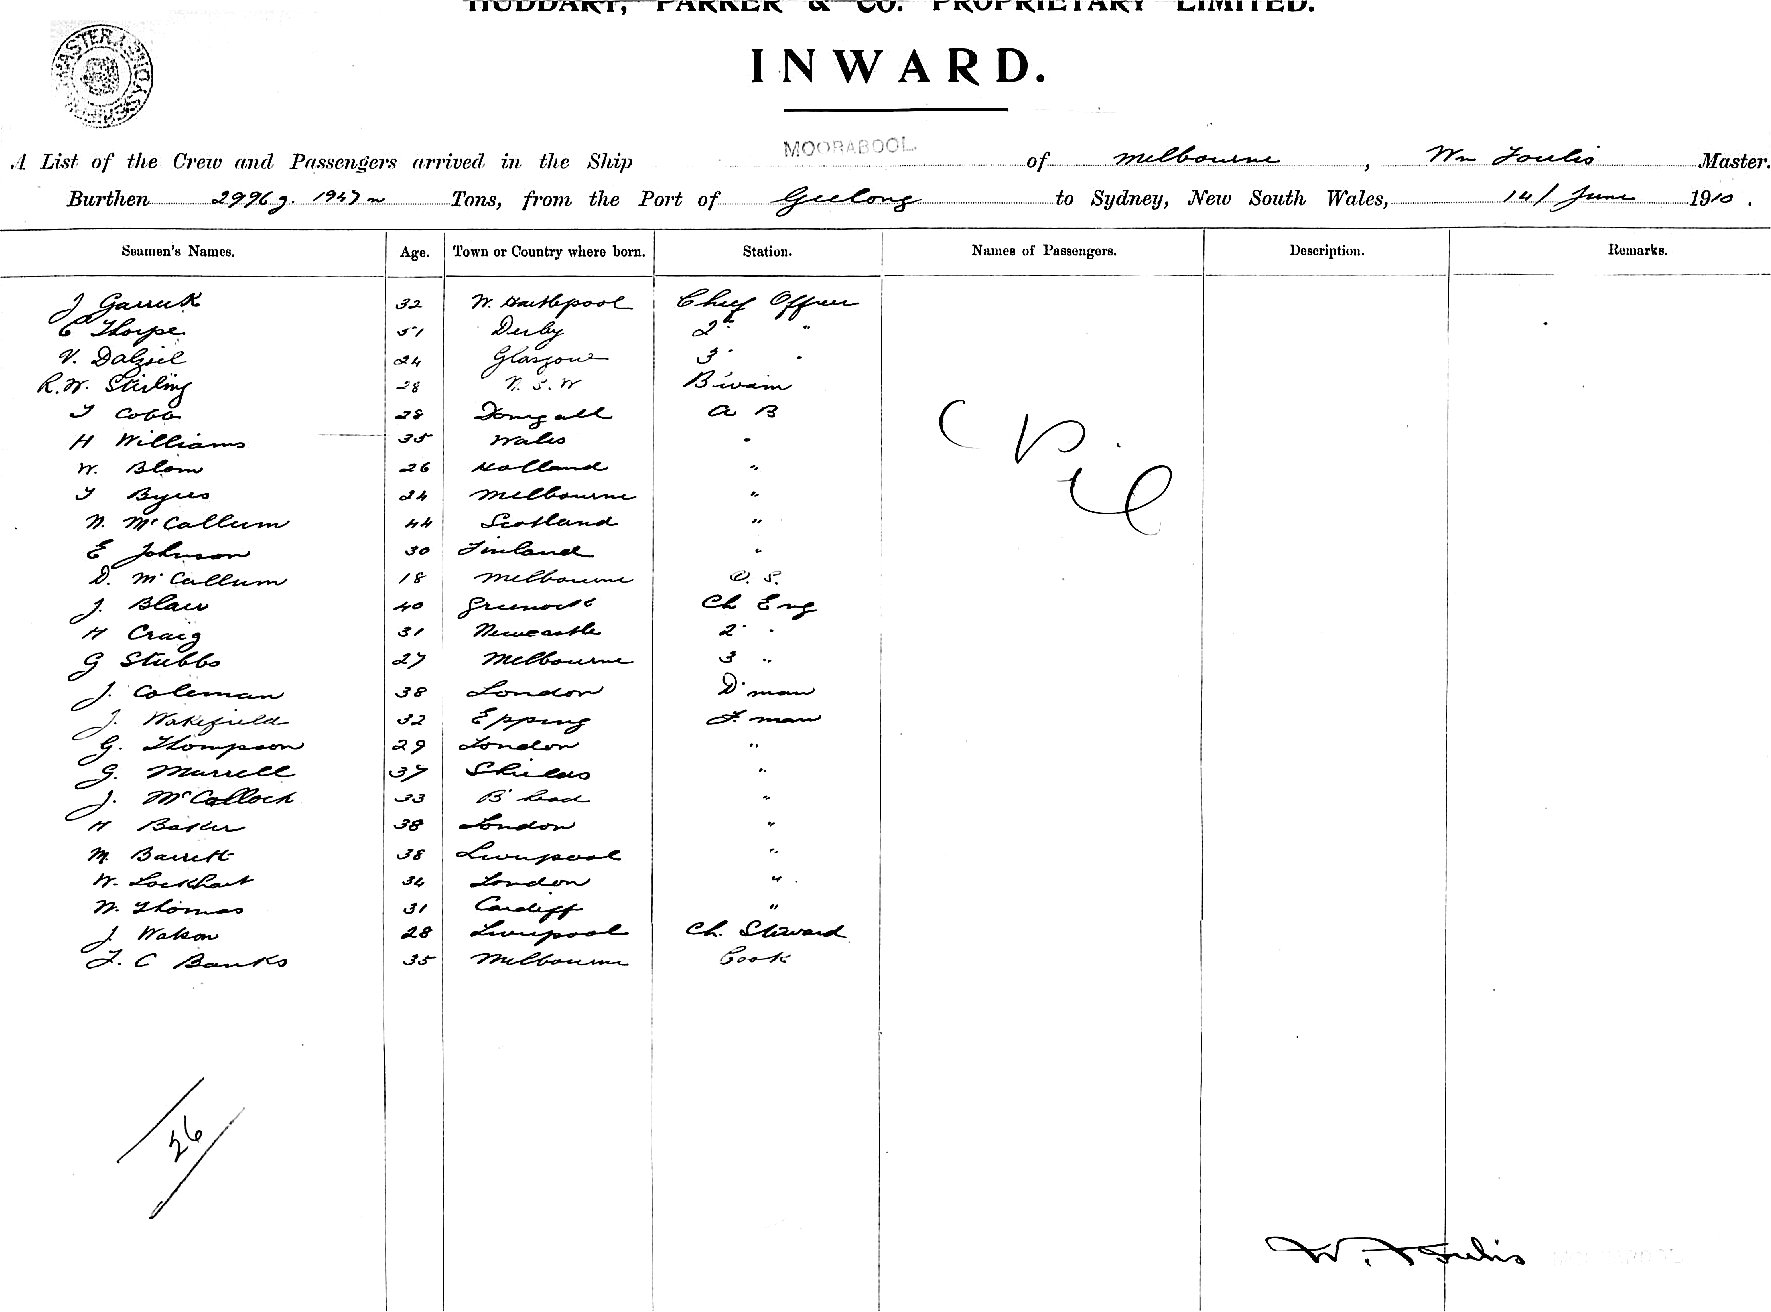 HUDDART, PARKER & CO. PROPRIETARY LIMITED.
INWARD.
A List of the Crew and Passengers arrived in the Ship MOORABOOL of Melbourne, Wm Foulis Master.
Burthen 2996 g. 1947 n Tons, from the Port of Geelong to Sydney, New South Wales, 14/ June 1910.
Seamen's Names. Age. Town or Country where born. Station. Names of Passengers. Description. Remarks.
J Garrick 32 W. Hartlepool Chief Officer
C Thorpe 51 Derby 2nd "
V. Dalziel 24 Glasgow 3 "
R.W. Stirling 28 N.S.W B'wain
T Cobb 28 A B
H Williams 35 Wales "
W. Blom 26 Holland "
T Byres 24 Melbourne "
N. McCallum 44 Scotland "
E Johnson 30 Finland "
D. McCallum 18 Melbourne O.S.
J. Blair 40 Greenock Ch Eng
H Craig 31 Newcastle 2 "
G Stubbs 27 Melbourne 3 "
J. Coleman 38 London D'man
J. Wakefield 32 Epping F. man
G. Thompson 29 London "
G. Murrell 37 Shields "
J. McCulloch 33 B'head "
H Baker 38 London "
M Barrett 38 Liverpool "
W. Lockhart 34 London "
W. Thomas 31 Cardiff "
J Watson 28 Liverpool Ch. Steward
F. C Banks 35 Melbourne Cook
26
W. Foulis